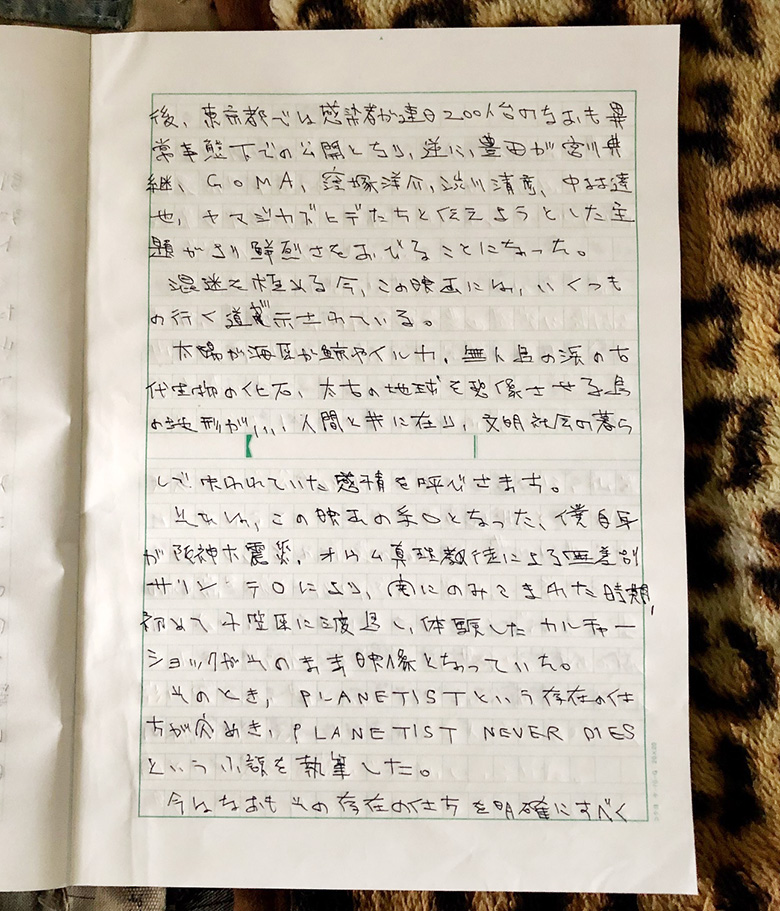 後、東京都では感染者が連日200人台のなおも異
常事態下での公開となり、逆に、豊田が宮川典
継、GOMA、窪塚洋介、渋川清彦、中村達
也、ヤマジカズヒデたちと伝えようとした主
題がより鮮烈さをおびることになった。
混迷を極める今、この映画には、いくつも
の行く道が示されている。
太陽が海原が鯨やイルカ、無人島の浜の古
代生物の化石、太古の地球を想像させる島
の波形が、、、人間と共に在り、文明社会の暮ら
しで失われていた感情を呼びさます。
それは、この映画の糸口となった、僕自身
が阪神大震災、オウム真理教徒による無差別
サリンテロにより、闇にのみこまれた時期、
初めて小笠原に渡島し、体験したカルチャー
ショックがそのまま映像となっていた。
そのとき、PLANETISTという存在の仕
方が閃めき、PLANETIST NEVER DIES
という小説を執筆した。
今はなおもその存在の仕方を明確にすべく